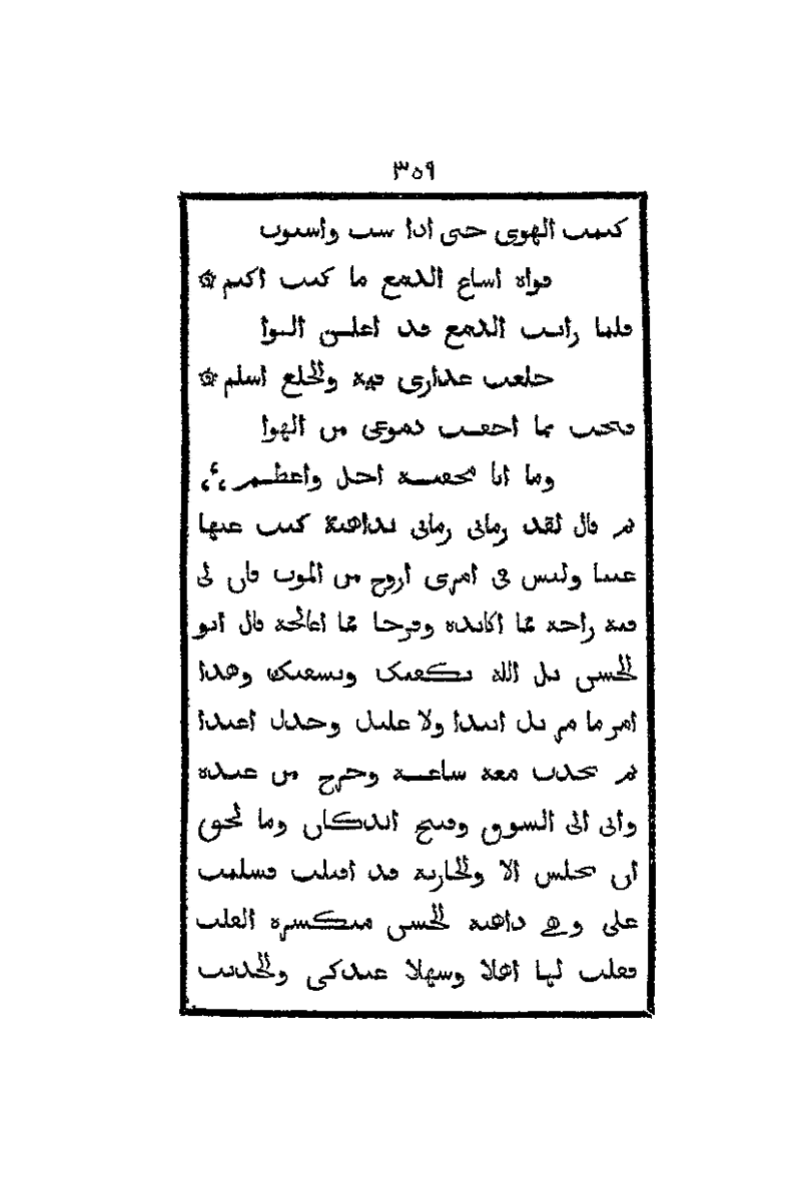 ٣٥٩
كتمت الهوى حتى اذا شب واستوت
قواه اشاع الدمع ما كنت اكتم ۞
فلما رايت الدمع قد اعلن الهوا
خلعت عذارى فيه والخلع اسلم ۞
فبحت بما اخفت دموعى من الهوا
وما انا مخفيه اجل واعظم
ثم قال لقد رمانى زمانى بداهية كنت عنها
غنيا وليس فى امرى اروح من الموت فان لى
فيه راحة مما اكابده وفرحا مما اعالجه قال ابو
الحسن بل الله يكفيك ويشفيك وهذا
امر ما مر بك ابتدا ولا عليك وحدك اعتدا
ثم تحدث معه ساعة وخرج من عنده
واتى الى السوق وفتح الدكان وما لحق
ان يجلس الا والجارية قد اقبلت فسلمت
على وهى ذاهبة الحس منكسرة القلب
فقلت لها اهلا وسهلا عندكى والحديث